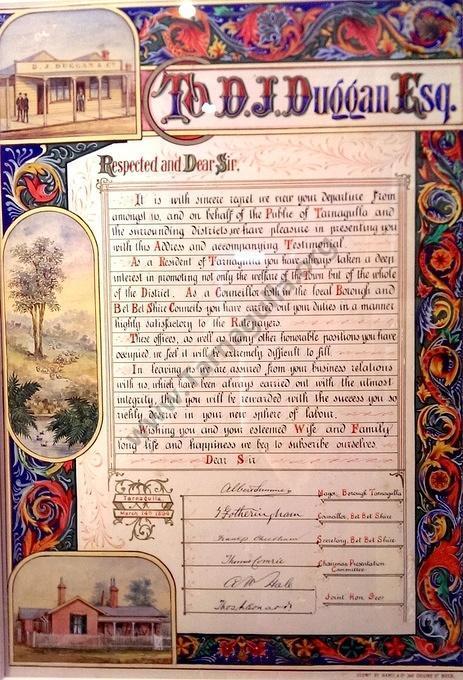 D. J. DUGGAN & Co
To D. J. Duggan Esq.
Respected and Dear Sir,
It is with sincere regret we view your departure from
amongst us, and on behalf of the Public of Tarnagulla and
the surrounding Districts, we have pleasure in presenting you
with this Address and accompanying Testimonial.
As a Resident of Tarnagulla you have always taken a deep
interest in promoting not only the welfare of the Town but of the whole
of the District. As a Councillor both in the local Borough and
Bet Bet Shire Councils you have carried out your duties in a manner
highly satisfactory to the Ratepayers.
These offices, as well as many other honorable positions you have
occupied, we feel it will be extremely difficult to fill.
In leaving us we are assured from your business relations
with us, which have been always carried out with the utmost
integrity, that you will be rewarded with the success you so
richly deserve in your new sphere of labour.
Wishing you and your esteemed Wife and Family
long life and happiness we beg to subscribe ourselves
Dear Sir
Tarnagulla
March 14th
Mayor, Borough Tarnagulla
J Fotheringham
Councillor, Bet Bet Shire
Secretary, Bet Bet Shire
Thomas Comrie
Chairman Presentation
Committee
Hale
Joint Hon. Secs